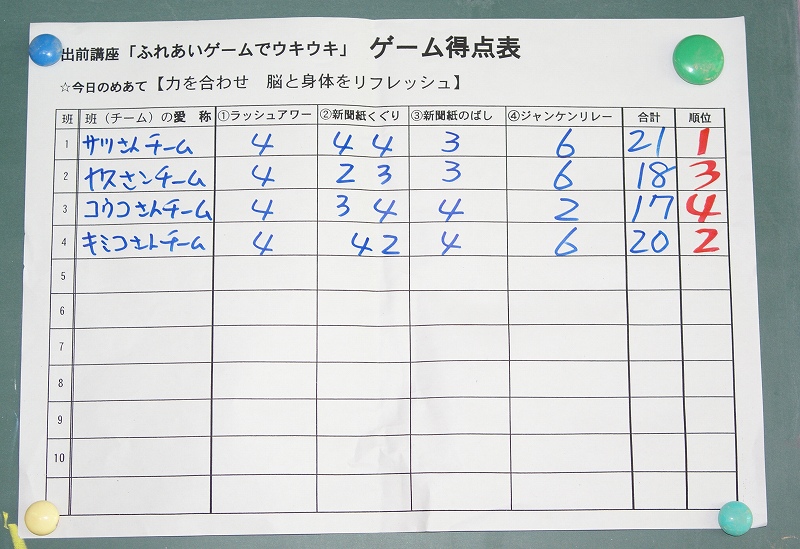 出前講座「ふれあいゲームでウキウキ」 ゲーム得点表
☆今日のめあて【力を合わせ 脳と身体をリフレッシュ】
班 班(チーム)の愛 称 ①ラッシュアワー ②新聞紙くぐり ③新聞紙のばし ④ジャンケンリレー 合計 順位
1 サツさんチーム 4 4 4 3 6 21 1
2 ヤスさンチーム 4 2 3 3 6 18 3
3 コウコさんチーム 4 3 4 4 2 17 4
4 キミコさんチーム 4 4 2 4 6 20 2
5
6
7
8
9
10